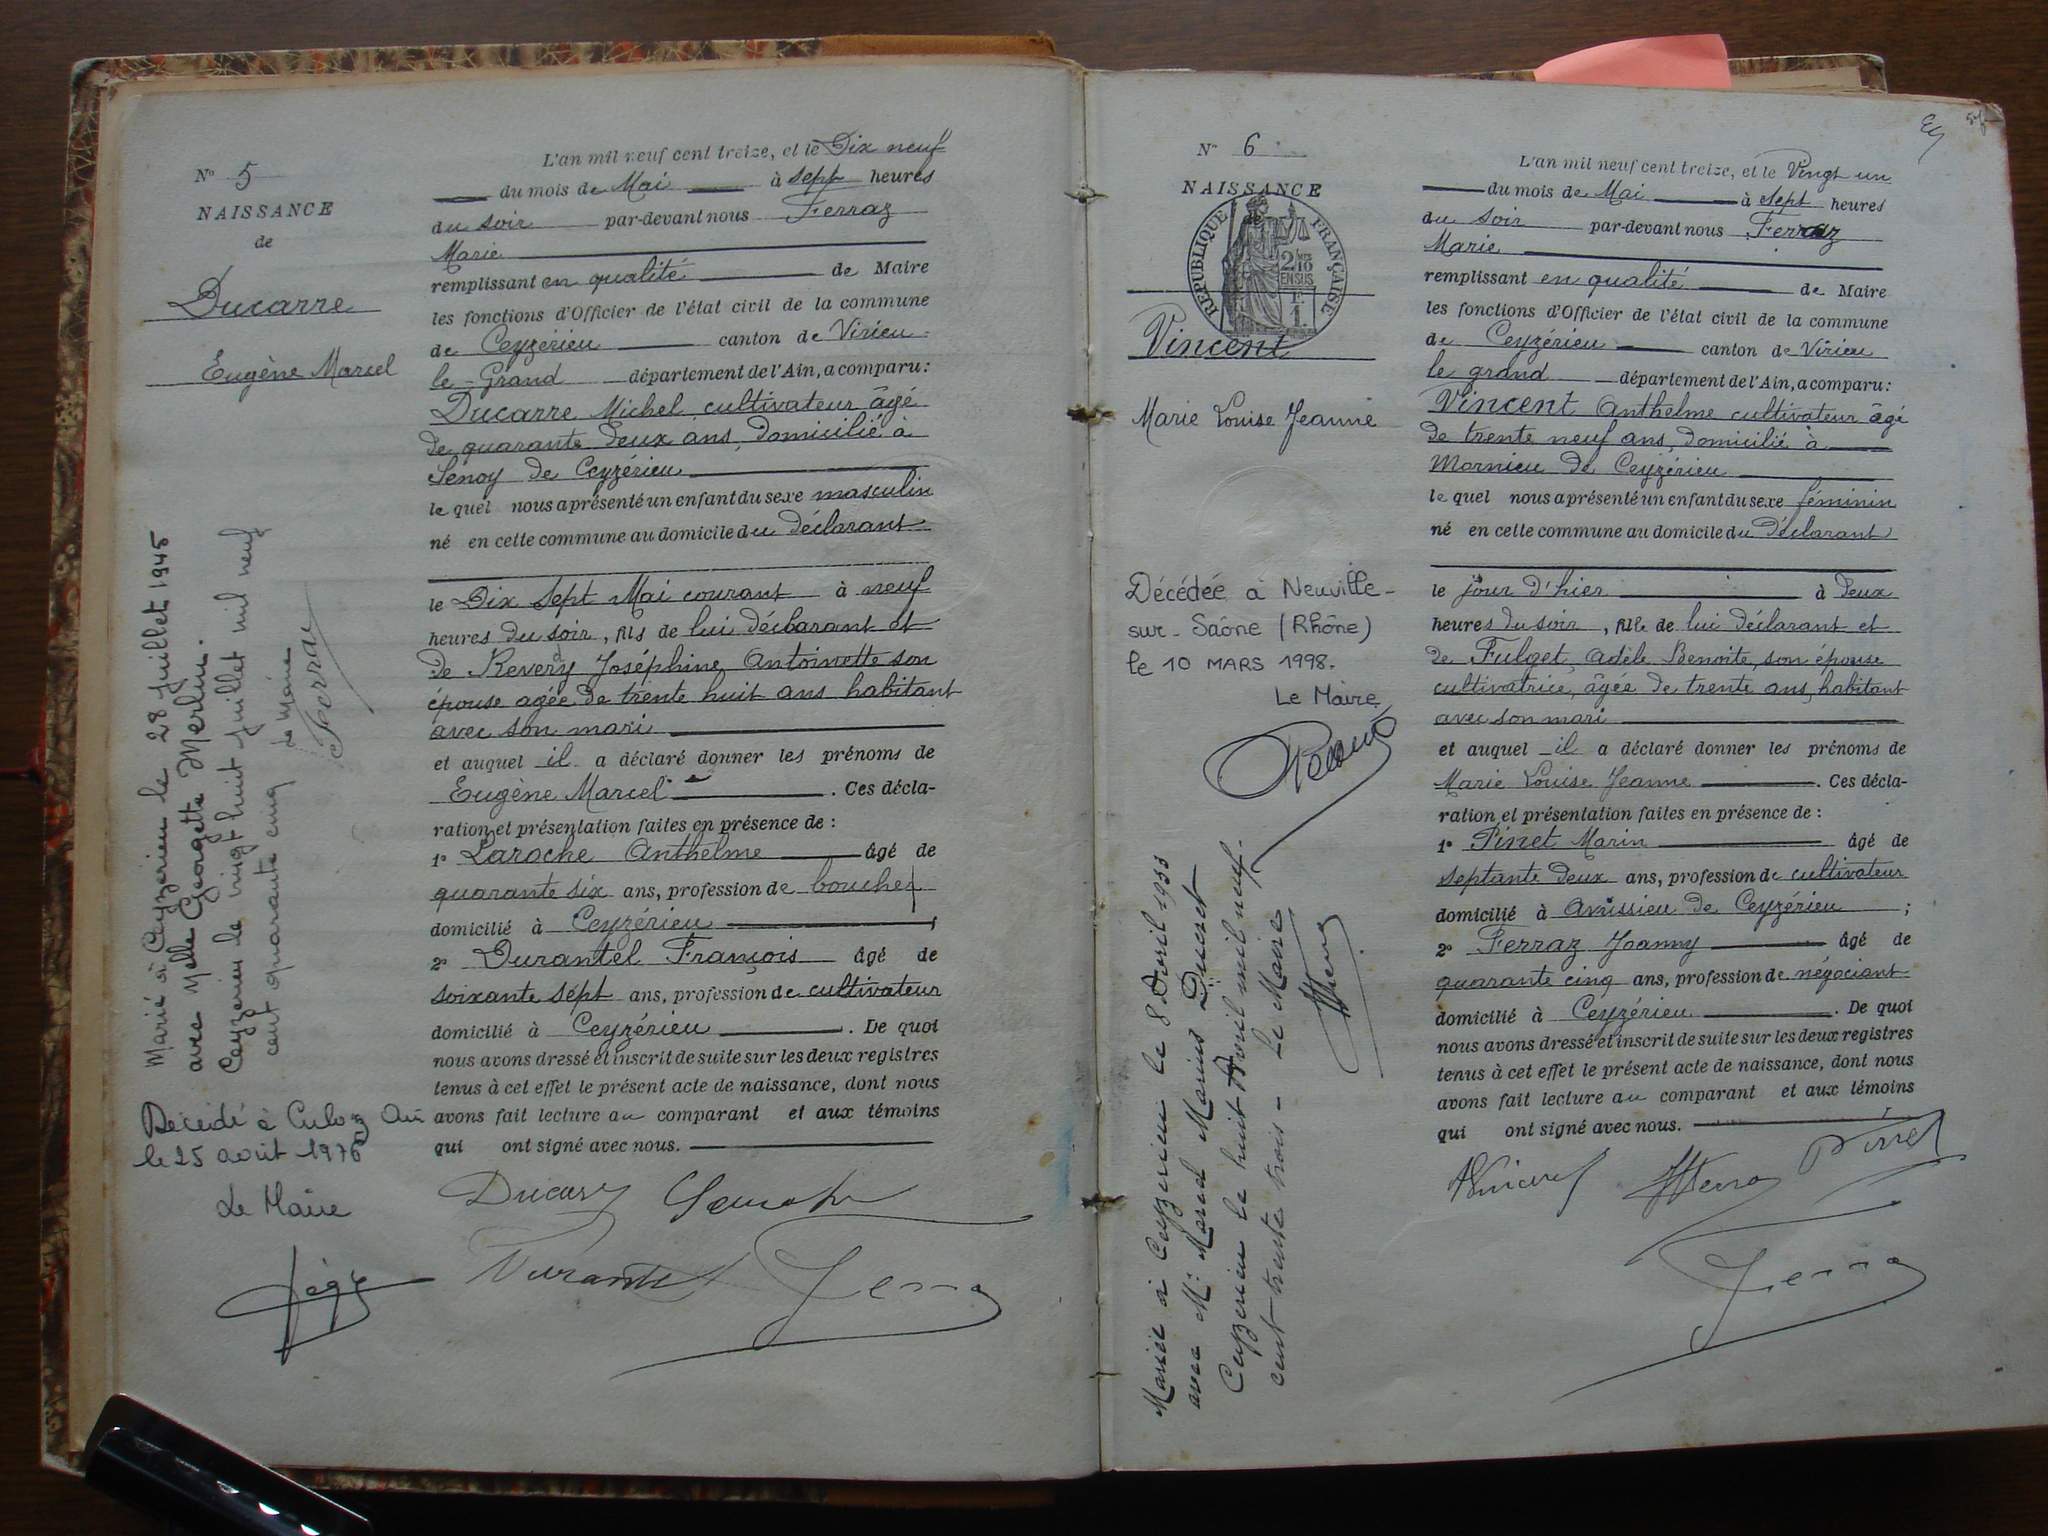 N° 5
NAISSANCE
de
Ducarre
Eugène Marcel
L'an mil neuf cent treize, et le Dix neuf
du mois de Mai à sept heures
du soir par-devant nous Ferraz
Marie
remplissant en qualité de Maire
les fonctions d'Officier de l'état civil de la commune
de Ceyzérieu canton de Virieu-
le-Grand département de l'Ain, a comparu:
Ducarre Michel cultivateur âgé
de quarante deux ans, domicilié à
Senoy de Ceyzérieu
le quel nous a présenté un enfant du sexe masculin
né en cette commune au domicile du déclarant
le Dix sept Mai courant à neuf
heures du soir, fils de lui déclarant et
de Revery Joséphine Antoinette son
épouse agée de trente huit ans habitant
avec son mari
et auquel il a déclaré donner les prénoms de
Eugène Marcel. Ces décla-
ration et présentation faites en présence de :
1° Laroche Anthelme âgé de
quarante six ans, profession de boucher
domicilié à Ceyzérieu ;
2° Durantel François âgé de
soixante sept ans, profession de cultivateur
domicilié à Ceyzérieu. De quoi
nous avons dressé et inscrit de suite sur les deux registres
tenus à cet effet le présent acte de naissance, dont nous
avons fait lecture au comparant et aux témoins
qui ont signé avec nous.
Marié à Ceyzérieu le 28 juillet 1945
avec Melle Georgette Merlin.
Ceyzérieu le vingt huit juillet mil neuf
cent quarante cinq
le Maire
Ferraz
Décédé à Culoz Ain
le 25 août 1976
Le Maire
Durantel
Ferraz
N° 6
NAISSANCE
de
REPUBLIQUE FRANÇAISE
2/10 EN SUS
Vincent
Marie Louise Jeanne
L'an mil neuf cent treize, et le Vingt un
du mois de Mai à sept heures
du soir par-devant nous Ferraz
Marie
remplissant en qualité de Maire
les fonctions d'Officier de l'état civil de la commune
de Ceyzérieu canton de Virieu
le grand département de l'Ain, a comparu:
Vincent Anthelme cultivateur âgé
de trente neuf ans, domicilié à
Mornieu de Ceyzérieu
le quel nous a présenté un enfant du sexe féminin
né en cette commune au domicile du Déclarant
le jour d'hier à deux
heures du soir, fille de lui déclarant et
de Fulget, Adèle Benoite, son épouse
cultivatrice, âgée de trente ans, habitant
avec son mari
et auquel il a déclaré donner les prénoms de
Marie Louise Jeanne. Ces décla-
ration et présentation faites en présence de :
1° Pinet Marin âgé de
septante deux ans, profession de cultivateur
domicilié à Avrissieu de Ceyzérieu ;
2° Ferraz Joanny âgé de
quarante cinq ans, profession de négociant
domicilié à Ceyzérieu. De quoi
nous avons dressé et inscrit de suite sur les deux registres
tenus à cet effet le présent acte de naissance, dont nous
avons fait lecture au comparant et aux témoins
qui ont signé avec nous.
Décédée à Neuville-
sur-Saône (Rhône)
le 10 MARS 1998.
Le Maire,
Mariée à Ceyzérieu le 8 Avril 1933
avec Mr Marcel Marius Ducret
Ceyzérieu le huit Avril mil neuf-
cent trente trois - Le Maire
Vincent
Pinet
Ferraz